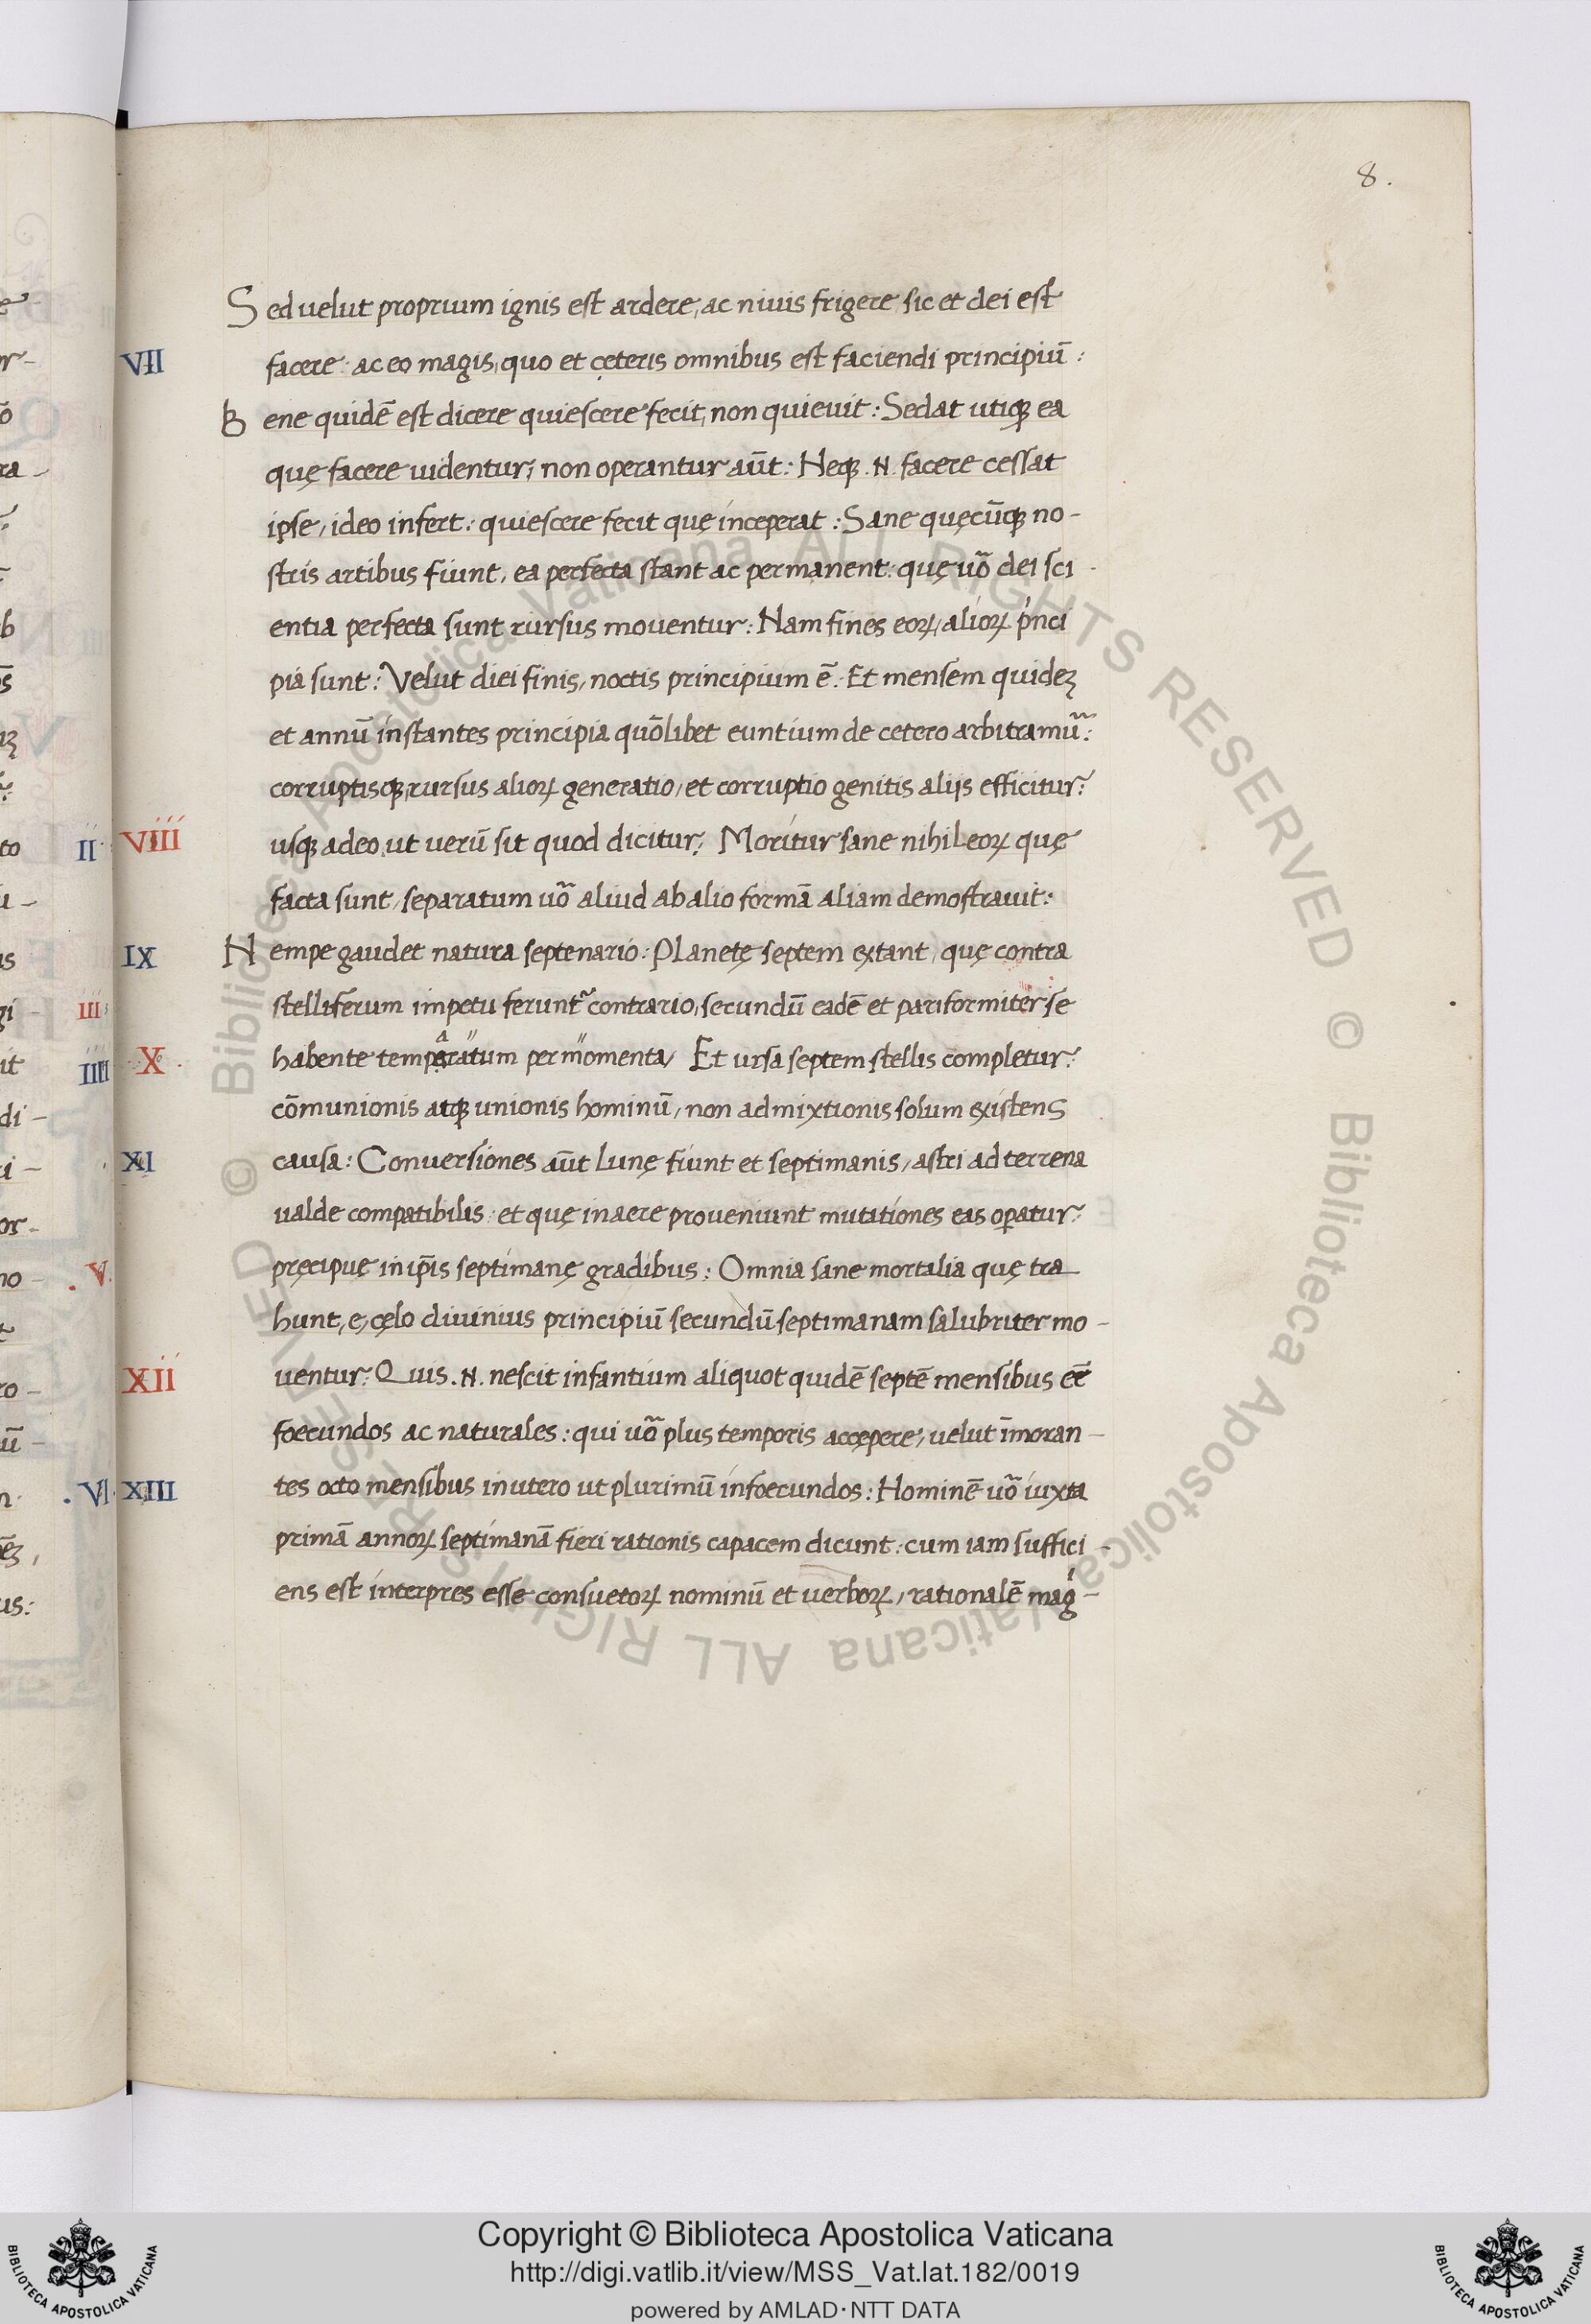 8.
Sed velut proprium ignis est ardere, ac nivis frigere sic et dei est
VII facere: ac eo magis, quo et cęteris omnibus est faciendi principiū:
Bene quidē est dicere quiescere fecit, non quievit: Sedat utiqꝫ ea
quę facere videntur; non operantur aūt: Neqꝫ .N. facere cessat
ipse, ideo infert: quiescere fecit quę inceperat: Sane quęcūqꝫ no-
stris artibus fiunt, ea perfecta stant ac permanent: quę uō dei sci-
entia perfecta sunt rursus moventur: Nam fines eoꝝ, alioꝝ pͥnci
pia sunt: Velut diei finis, noctis principium ē: Et mensem quideꝫ
et annū instantes principia quōlibet euntium de cetero arbitramū:
corruptisqꝫ, rursus alioꝝ generatio, et corruptio genitis aliis efficitur:
VIII usqꝫ adeo, ut verū sit quod dicitur; Moritur sane nihil eoꝝ quę
facta sunt, separatum uō aliud ab alio formā aliam demostravit:
IX Nempe gaudet natura septenario: Planetę septem extant, quę contra
stelliferum impetu ferunt᷑ contrario, secundū eadē et pariformiter se
X habente temperatum per momenta, Et ursa septem stellis completur:
cōmunionis atqꝫ unionis hominū, non admixtionis solum existens
XI causa: Conversiones aūt lunę fiunt et septimanis, astri ad terrena
valde compatibilis: et quę in aere proveniunt mutationes eas opatur:
pręcipuę in ip̄is septimanę gradibus: Omnia sane mortalia quę tra
hunt, e, cęlo divinius principiū secundū septimanam salubriter mo-
XII ventur: Quis .N. nescit infantium aliquot quidē septē mensibus eē
foecundos ac naturales: qui uō plus temporis accępere, velut īmoran-
XIII tes octo mensibus in utero ut plurimū infoecundos: Hominē uō iuxta
primā annoꝝ septimanā fieri rationis capacem dicunt: cum iam suffici-
ens est interpres esse consuetoꝝ nominū et verboꝝ, rationalē magͥ-
II
III
IIII
V
VI
© Biblioteca Apostolica Vaticana ALL RIGHTS RESERVED © Biblioteca Apostolica Vaticana ALL RIGHTS RESERVED
Copyright © Biblioteca Apostolica Vaticana
http://digi.vatlib.it/view/MSS_Vat.lat.182/0019
powered by AMLAD·NTT DATA
BIBLIOTECA APOSTOLICA VATICANA
BIBLIOTECA APOSTOLICA VATICANA